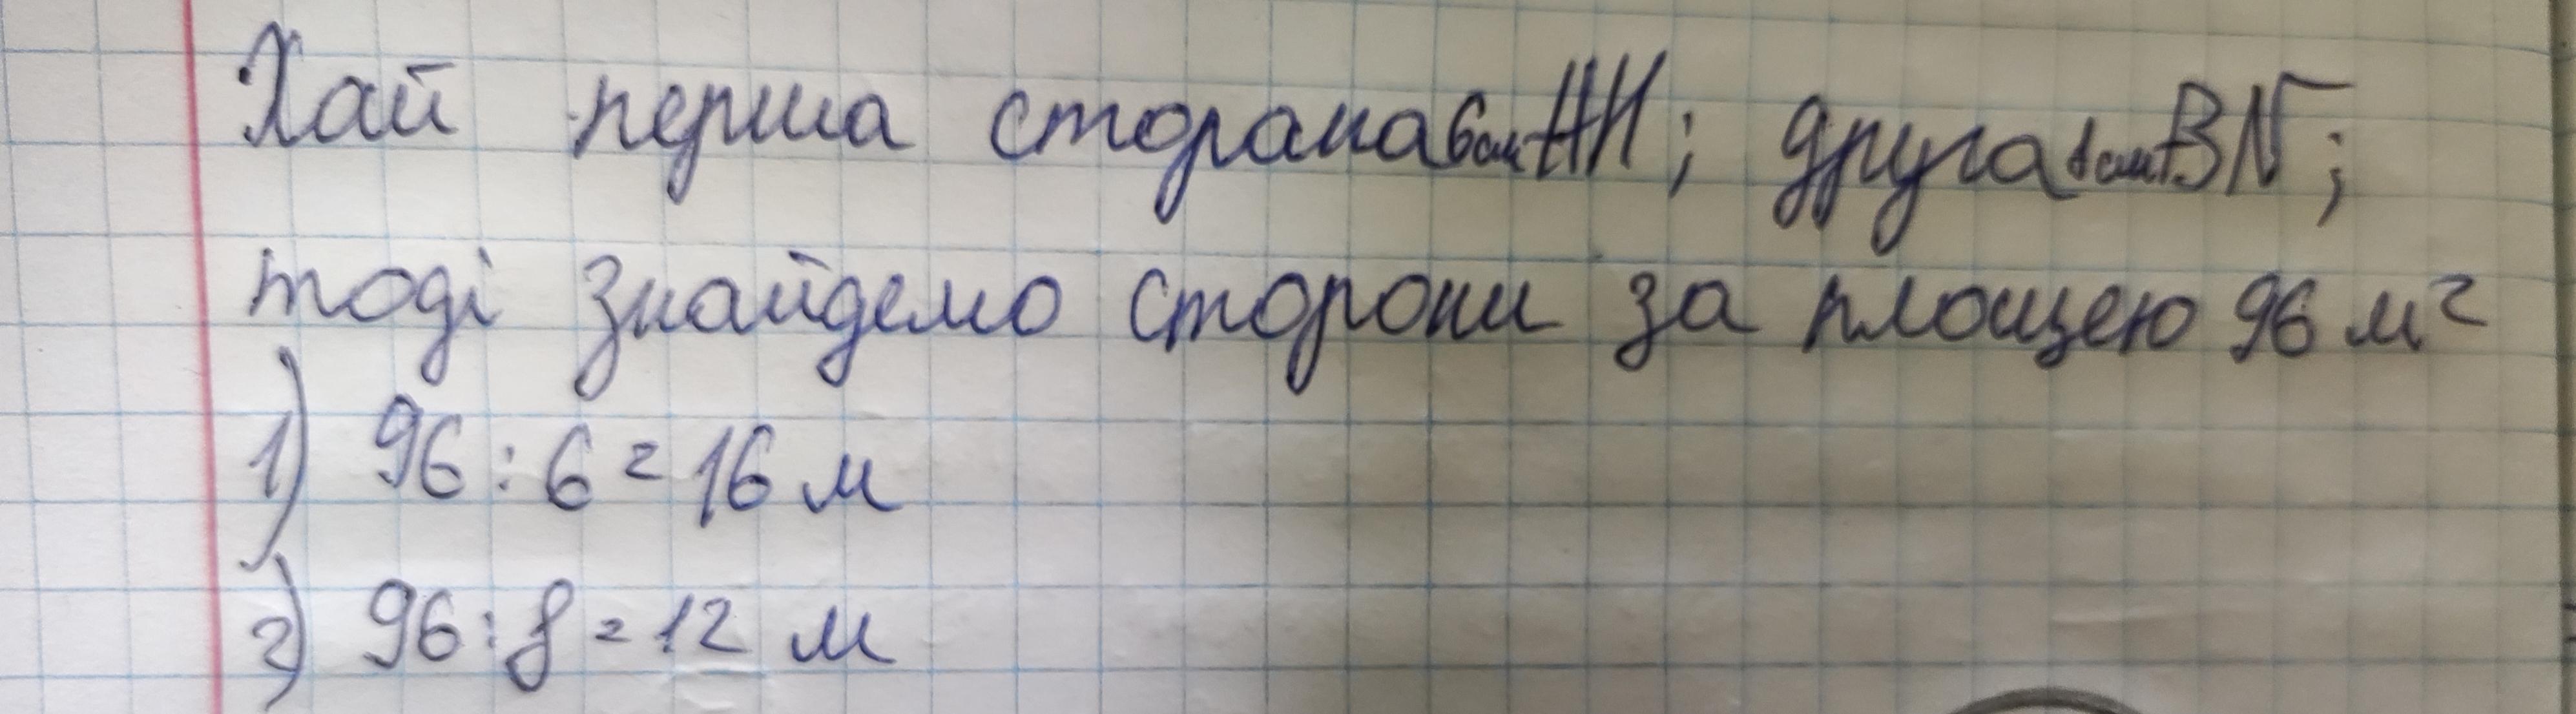 Хай перша сторана 6см АН; друга 8см BN;
тоді знайдемо сторони за площею 96 м²
1) 96 : 6 = 16 м
2) 96 : 8 = 12 м